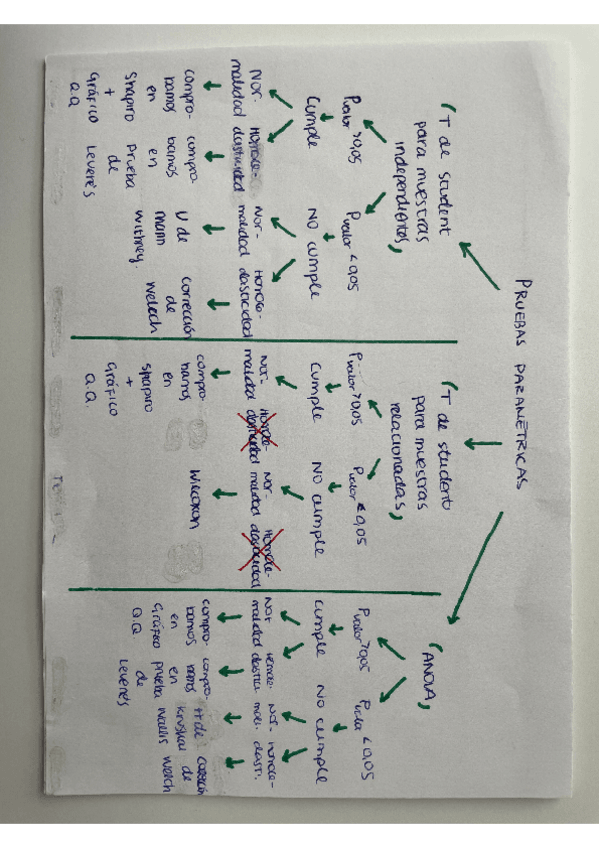 PRUEBAS PARAMÉTRICAS
"T de student
para muestras
independientes"
Pvalor >0,05
Cumple
Nor-
malidad
compro-
bamos
en
Shapiro
+
Gráfico
Q.Q
Homoce-
dasticidad
compro-
bamos
en
prueba
de
Levene's
Pvalor <0,05
NO cumple
Nor-
malidad
U de
mann
withney.
Homoce-
dasticidad
corrección
de
welech
"T de student
para muestras
relacionadas"
Pvalor >0,05
Cumple
Nor-
malidad
compro-
bamos
en
shapiro
+
Gráfico
Q.Q.
Homoce-
dasticidad
Pvalor <0,05
NO cumple
Nor-
malidad
Wilcoxon
Homoce-
dasticidad
"ANOVA"
Pvalor >0,05
cumple
Nor-
malidad
compro-
bamos
en
Gráfico
Q.Q
Homoce-
dastici.
compro-
bamos
en
prueba
de
Levene's
Pvalor <0,05
NO cumple
Nor-
mali.
H de
kruskal
wallis
Homoce-
dasti.
de
welch